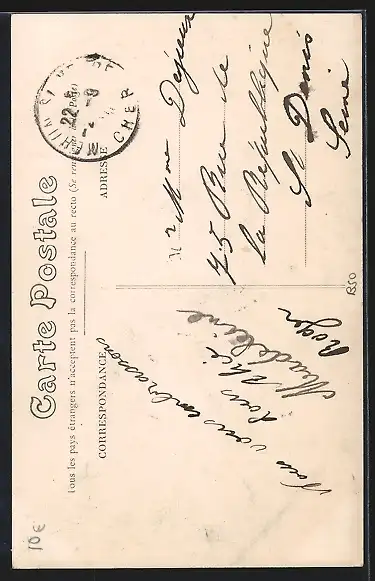 Carte Postale
Tous les pays étrangers n'acceptent pas la correspondance au recto (Se renseigner à la Poste)
CORRESPONDANCE
ADRESSE
CHER
M Mme Dejeux
75 Rue de
la République
St Denis
Seine
Tous vous embrassons
Madeleine
Roger
10€
B50